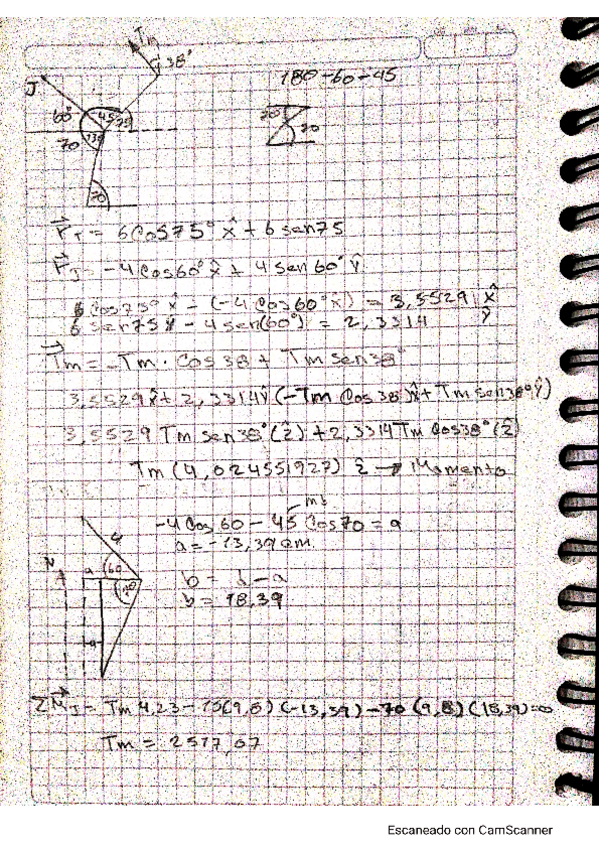 Tm
38°
J
180-60-45
60°
45
75
20
70
135
20
70
r⃗T = 6Cos75° x̂ + 6 sen75
r⃗J = -4Cos60° x̂ + 4 sen 60° ŷ
6 Cos75° x̂ - (-4 Cos 60° x̂) = 3,5529 x̂
6 sen75 ŷ - 4 sen(60°) = 2,3314 ŷ
T⃗m = -Tm · Cos 38 + Tm sen38°
3,5529 x̂ + 2,3314 ŷ (-Tm Cos 38°) x̂ + Tm sen38° ŷ)
3,5529 Tm sen38° (ẑ) + 2,3314 Tm Cos38° (ẑ)
Tm (4,024551927) ẑ → Momento
-4 Cos 60 - 45 Cos 70 = a
a = -13,39 cm
4
N
a
60
70°
b = d - a
b = 18,39
ΣM⃗J = Tm 4,23 - 15(9,8) (-13,39) - 70 (9,8) (18,39) = 0
Tm = 2517,07
Escaneado con CamScanner